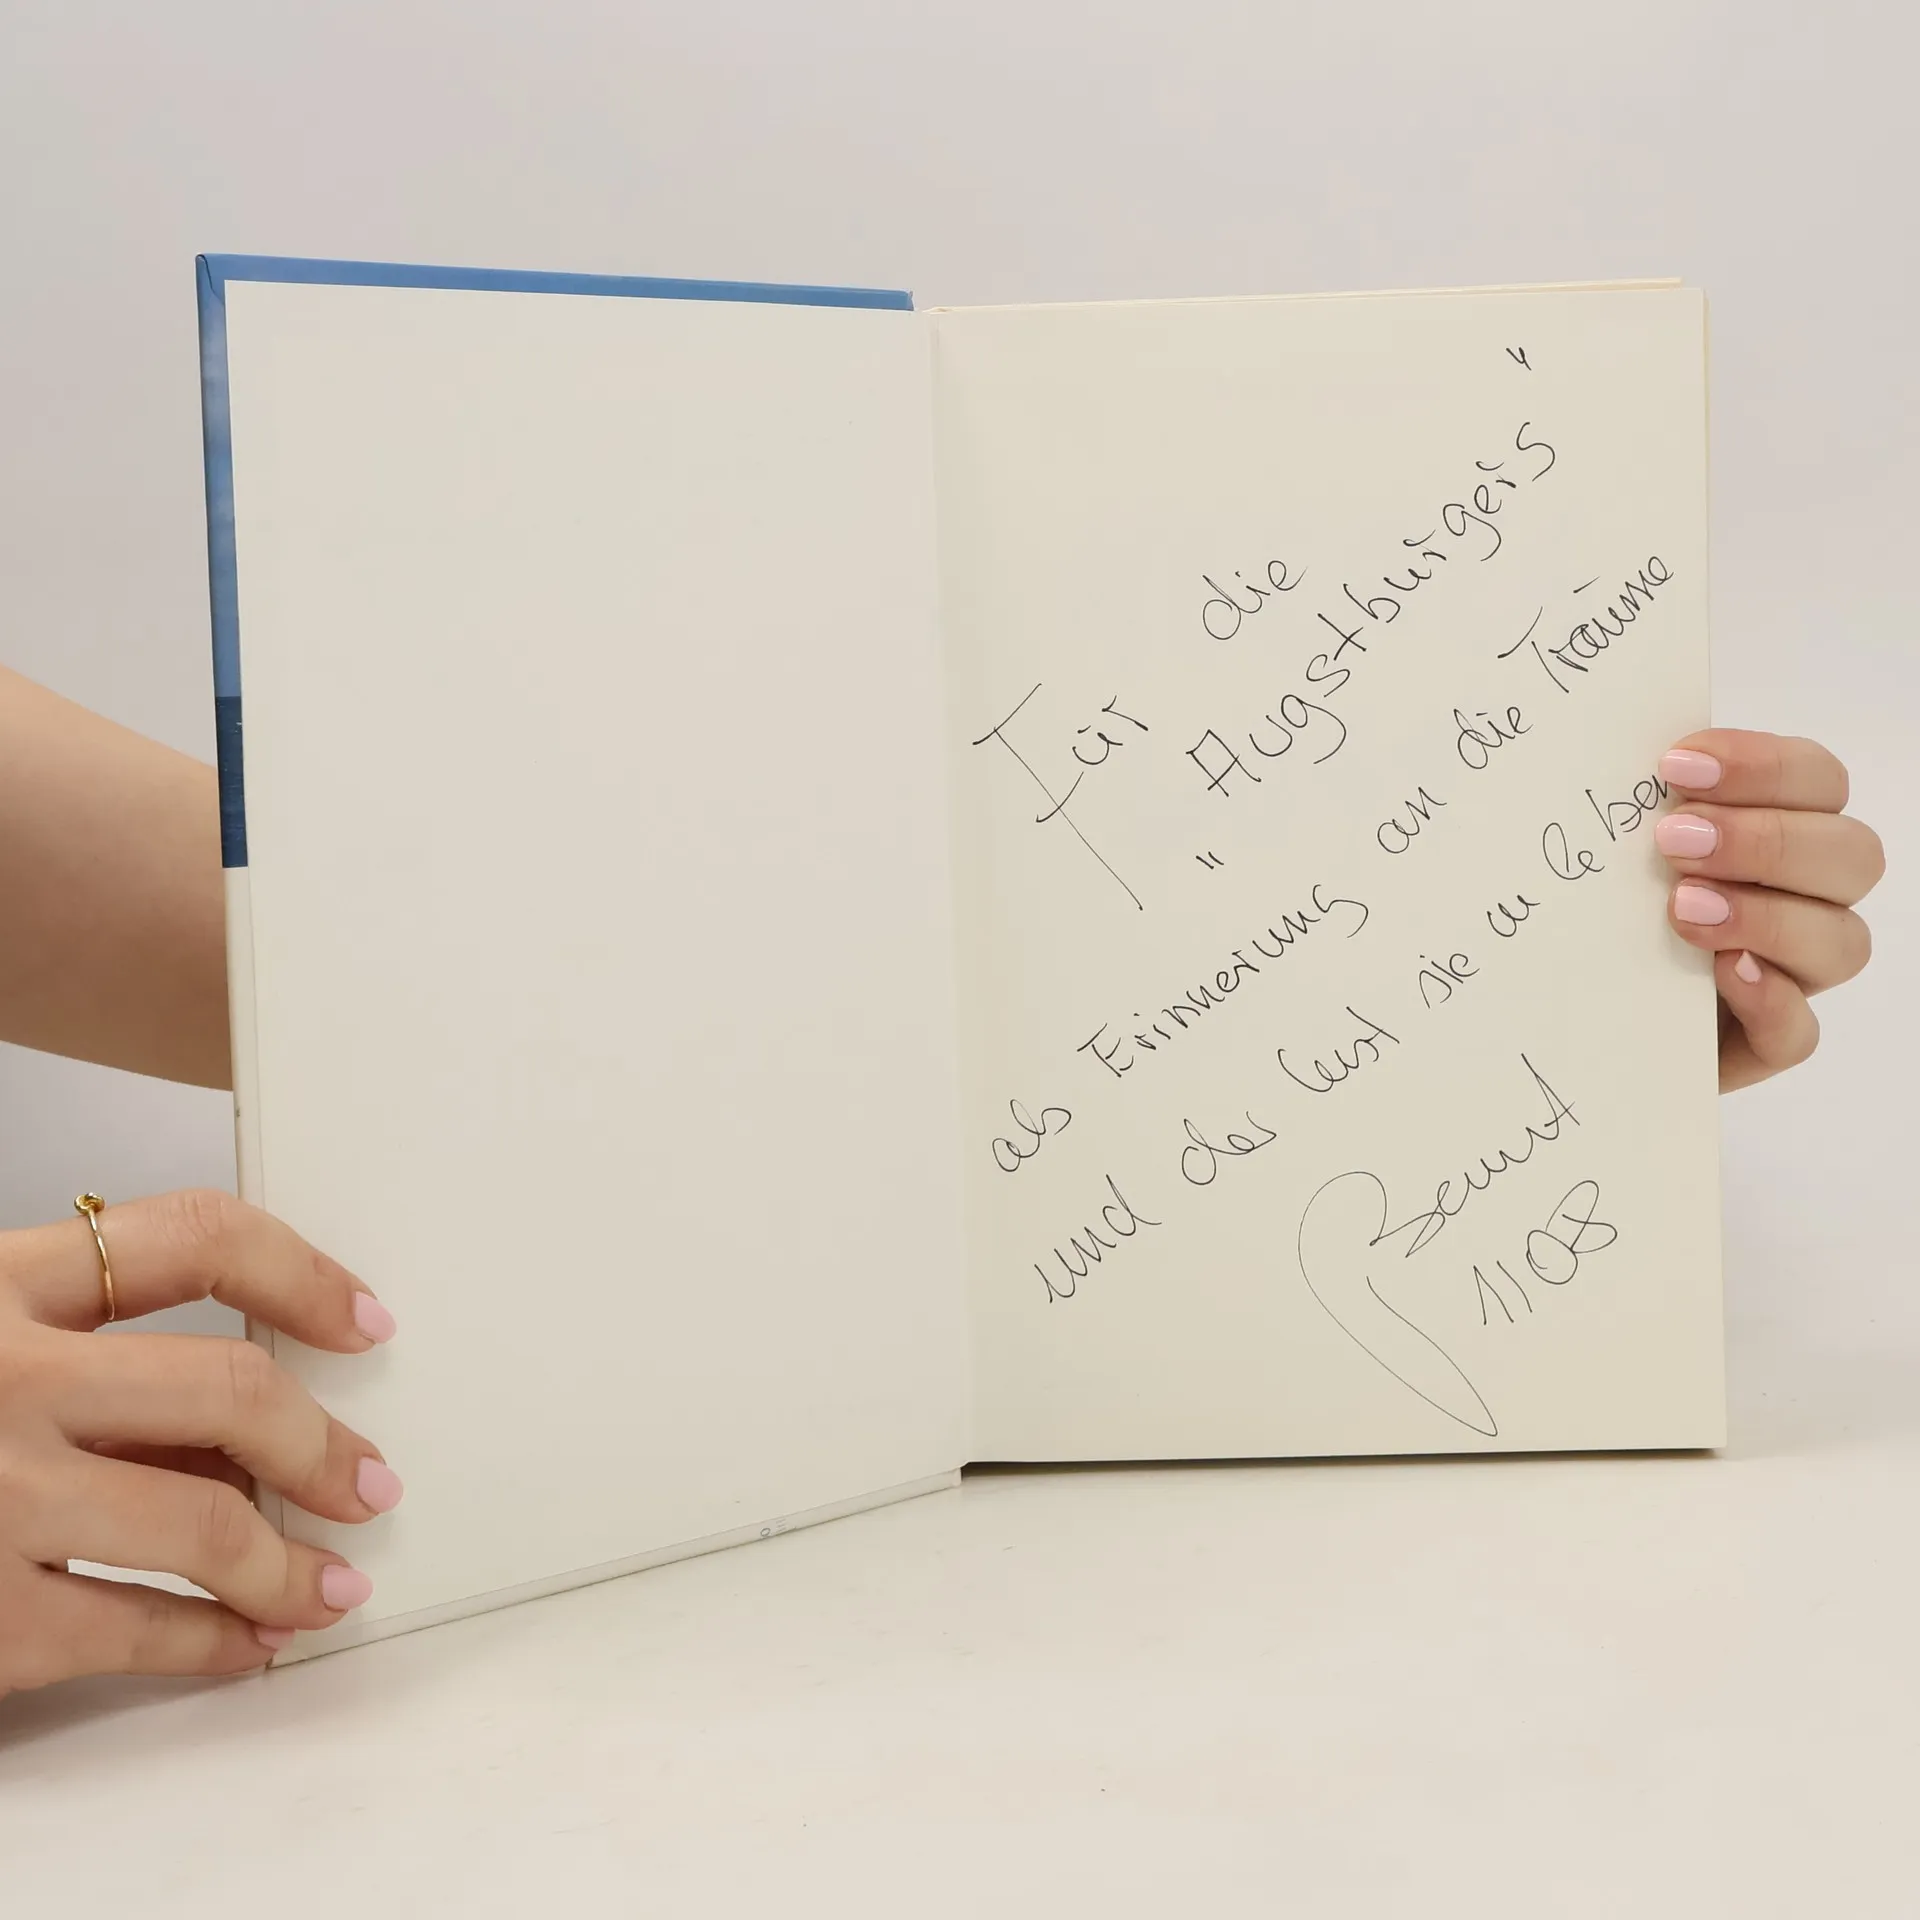 Für die
"Augstburgers"
als Erinnerung an die Träume
und der Lust sie zu leben
1108